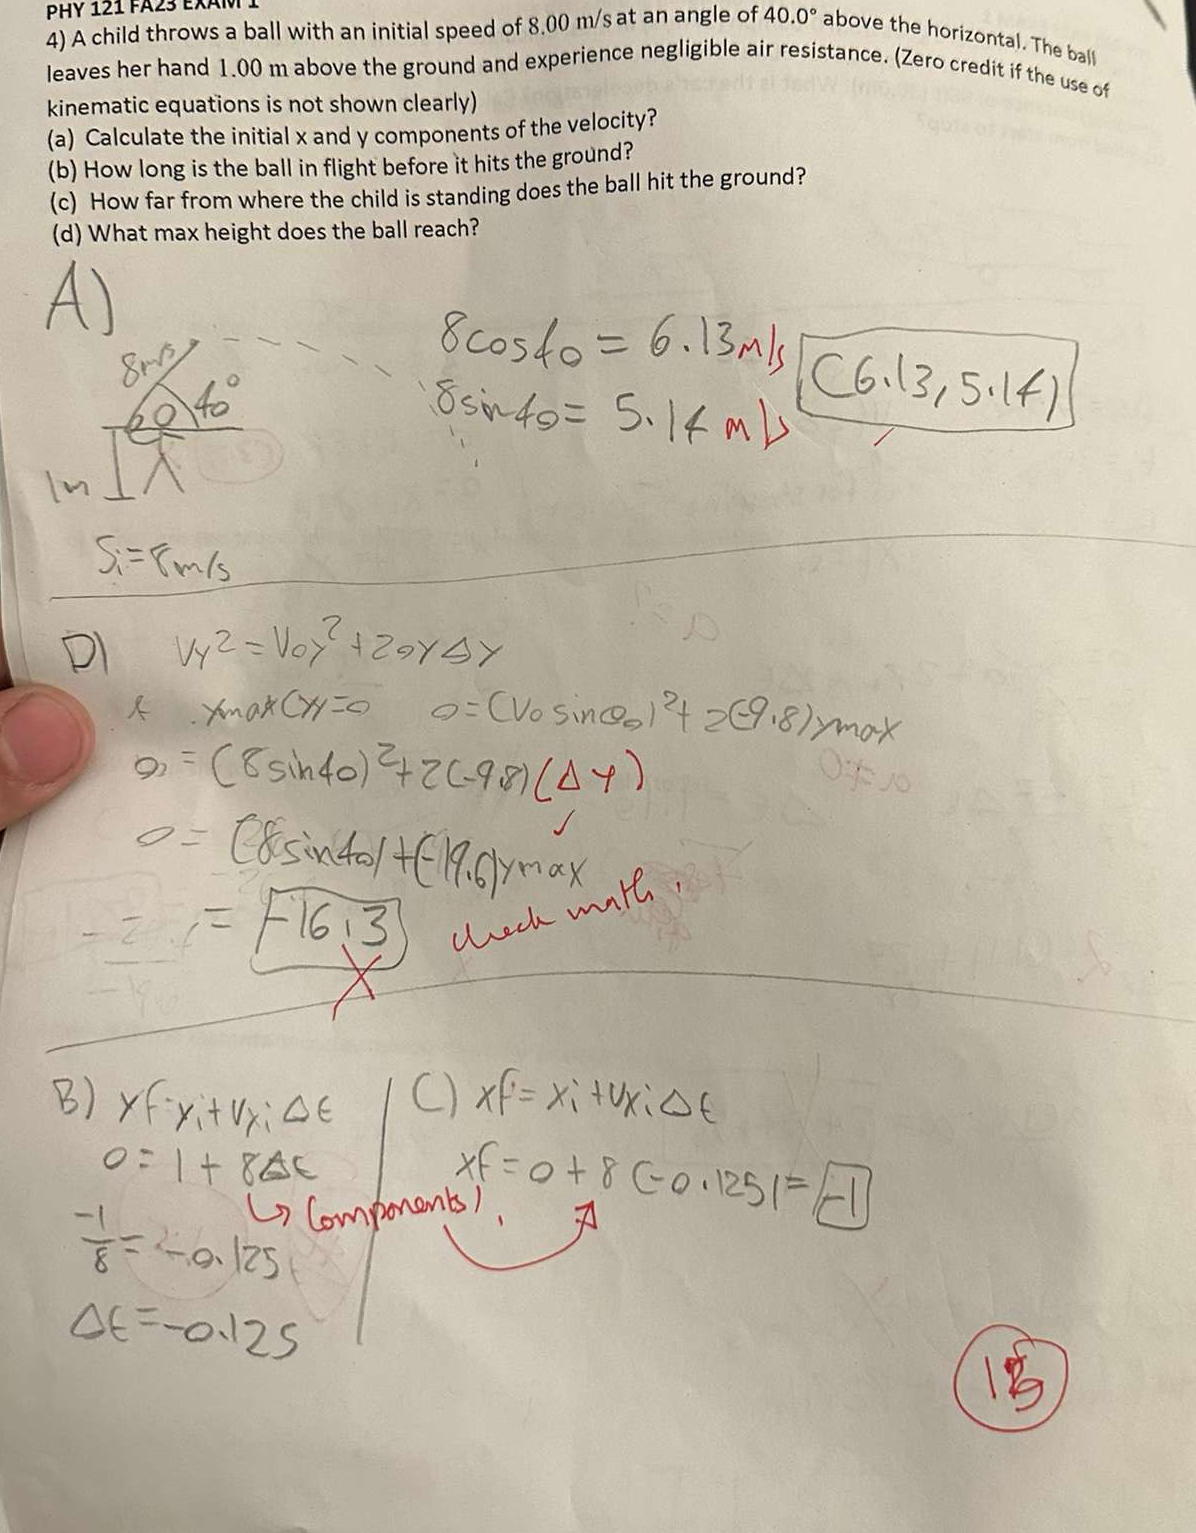 PHY 121 FA23 EXAM 1
4) A child throws a ball with an initial speed of 8.00 m/s at an angle of 40.0° above the horizontal. The ball
leaves her hand 1.00 m above the ground and experience negligible air resistance. (Zero credit if the use of
kinematic equations is not shown clearly)
(a) Calculate the initial x and y components of the velocity?
(b) How long is the ball in flight before it hits the ground?
(c) How far from where the child is standing does the ball hit the ground?
(d) What max height does the ball reach?
A)
8m/s
40°
1m
8cos40 = 6.13 m/s
8sin40 = 5.14 m/s
(6.13, 5.14)
Si = 8m/s
D) Vy² = Voy² + 2ayΔy
ymax Vy=0 0 = (V0 sinθ0)² + 2(-9.8)ymax
0 = (8sin40)² + 2(-9.8)(Δy)
0 = (8sin40) + (-19.6)ymax
= -16.3
check math.
B) xf=xi+Vxi Δt
0 = 1 + 8Δt
↳ Components).
-1/8 = -0.125
Δt = -0.125
C) xf = xi + Vxi Δt
xf = 0 + 8 (-0.125) = -1